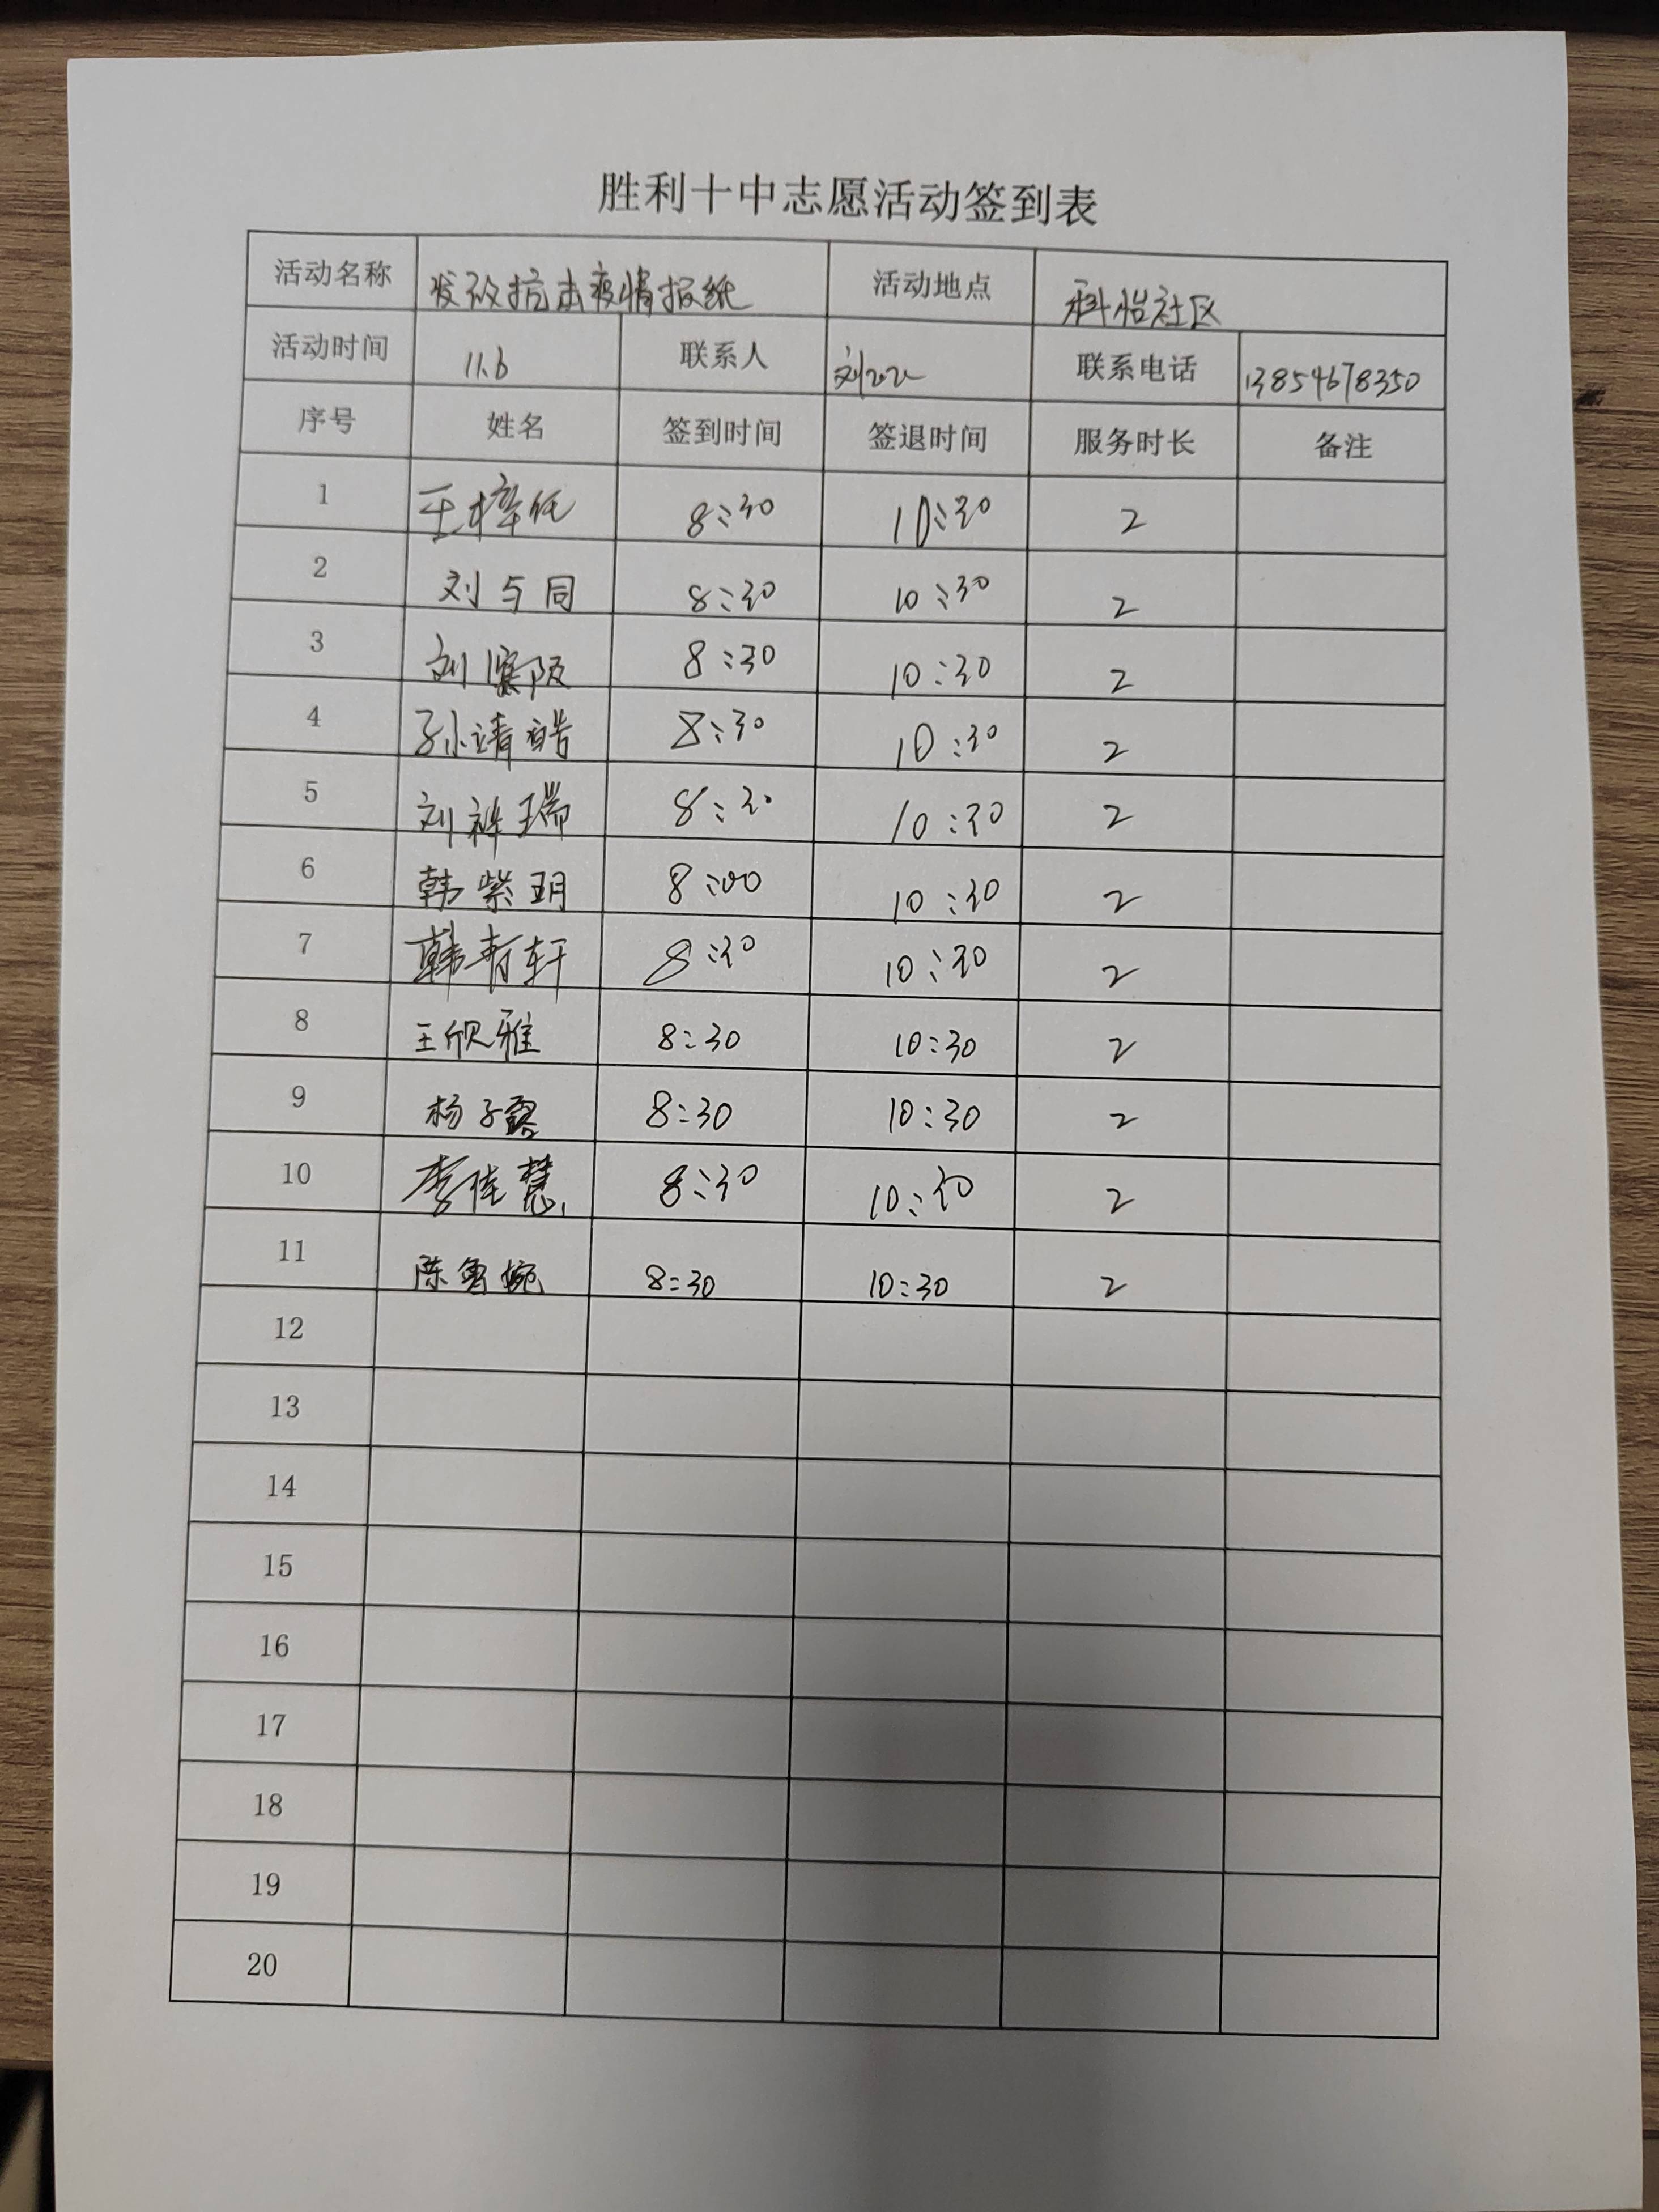 胜利十中志愿活动签到表
活动名称 发放抗击疫情报纸 活动地点 科怡社区
活动时间 11.6 联系人 刘 联系电话 13854678350
序号 姓名 签到时间 签退时间 服务时长 备注
1 王梓任 8:30 10:30 2
2 刘与同 8:30 10:30 2
3 刘 8:30 10:30 2
4 孙靖皓 8:30 10:30 2
5 刘祥瑞 8:30 10:30 2
6 韩紫玥 8:00 10:30 2
7 韩青轩 8:30 10:30 2
8 王欣雅 8:30 10:30 2
9 杨子露 8:30 10:30 2
10 李佳慧 8:30 10:30 2
11 陈鲁婉 8:30 10:30 2
12
13
14
15
16
17
18
19
20